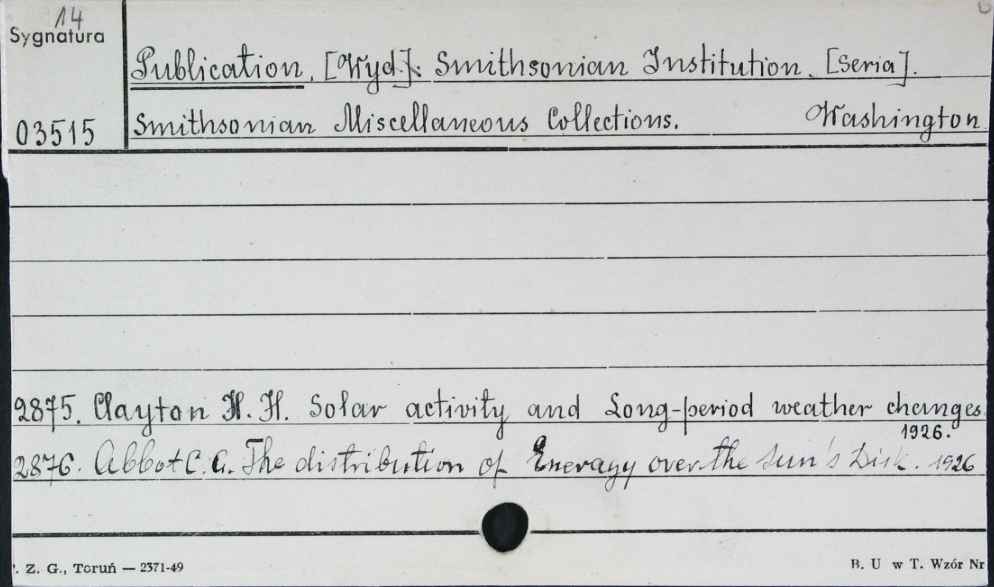 14
Sygnatura
Publication. [Wyd.]: Smithsonian Institution. [Seria].
03515 Smithsonian Miscellaneous Collections. Washington.
2875. Clayton H. H. Solar activity and Long-period weather changes.
1926.
2876. Abbot C. G. The distribution of Eneragy over the Sun's Disk. 1926
. Z. G., Toruń — 2371-49 B. U w T. Wzór Nr